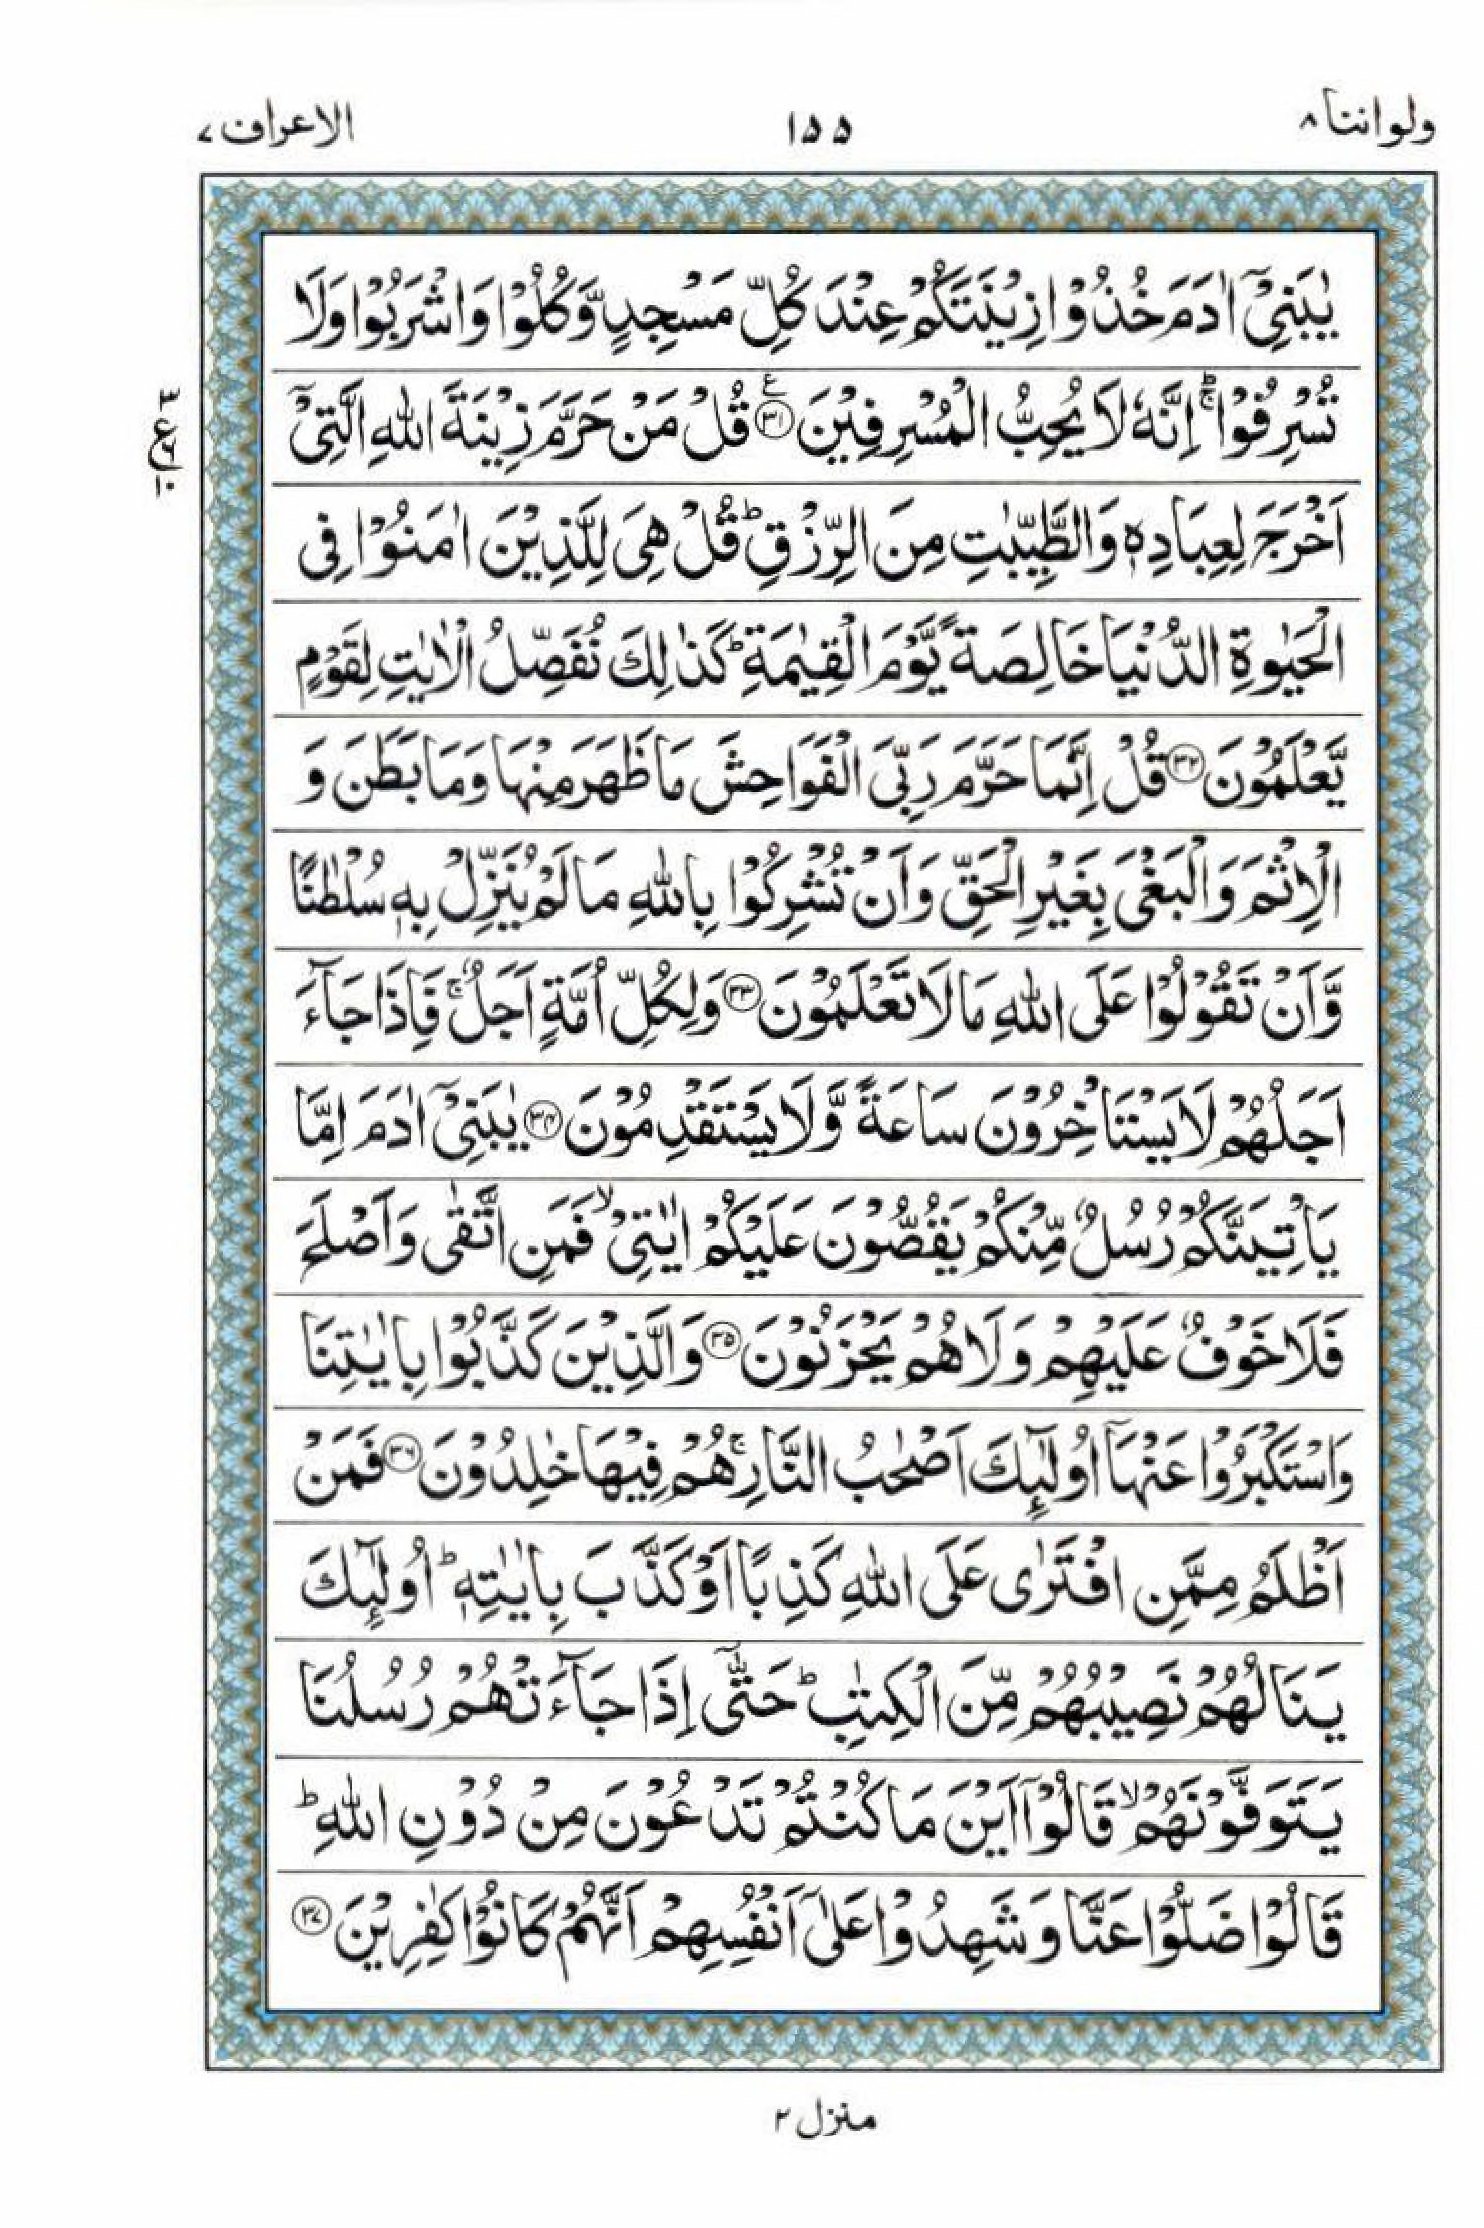 ولواننا ٨
١٥٥
الاعراف ٧
يٰبَنِىْٓ اٰدَمَ خُذُوْا زِيْنَتَكُمْ عِنْدَ كُلِّ مَسْجِدٍ وَّكُلُوْا وَاشْرَبُوْا وَلَا
تُسْرِفُوْا ۚؕ اِنَّهٗ لَا يُحِبُّ الْمُسْرِفِيْنَ ﴿٣١﴾ ع قُلْ مَنْ حَرَّمَ زِيْنَةَ اللّٰهِ الَّتِىْٓ
٣ ع ٦ ١٠
اَخْرَجَ لِعِبَادِهٖ وَالطَّيِّبٰتِ مِنَ الرِّزْقِ ؕ قُلْ هِىَ لِلَّذِيْنَ اٰمَنُوْا فِى
الْحَيٰوةِ الدُّنْيَا خَالِصَةً يَّوْمَ الْقِيٰمَةِ ؕ كَذٰلِكَ نُفَصِّلُ الْاٰيٰتِ لِقَوْمٍ
يَّعْلَمُوْنَ ﴿٣٢﴾ قُلْ اِنَّمَا حَرَّمَ رَبِّىَ الْفَوَاحِشَ مَا ظَهَرَ مِنْهَا وَمَا بَطَنَ وَ
الْاِثْمَ وَالْبَغْىَ بِغَيْرِ الْحَقِّ وَاَنْ تُشْرِكُوْا بِاللّٰهِ مَا لَمْ يُنَزِّلْ بِهٖ سُلْطٰنًا
وَّاَنْ تَقُوْلُوْا عَلَى اللّٰهِ مَا لَا تَعْلَمُوْنَ ﴿٣٣﴾ وَلِكُلِّ اُمَّةٍ اَجَلٌ ۚ فَاِذَا جَآءَ
اَجَلُهُمْ لَا يَسْتَاْخِرُوْنَ سَاعَةً وَّلَا يَسْتَقْدِمُوْنَ ﴿٣٤﴾ يٰبَنِىْٓ اٰدَمَ اِمَّا
يَاْتِيَنَّكُمْ رُسُلٌ مِّنْكُمْ يَقُصُّوْنَ عَلَيْكُمْ اٰيٰتِىْ ۙ فَمَنِ اتَّقٰى وَاَصْلَحَ
فَلَا خَوْفٌ عَلَيْهِمْ وَلَا هُمْ يَحْزَنُوْنَ ﴿٣٥﴾ وَالَّذِيْنَ كَذَّبُوْا بِاٰيٰتِنَا
وَاسْتَكْبَرُوْا عَنْهَاۤ اُولٰٓئِكَ اَصْحٰبُ النَّارِ ۚ هُمْ فِيْهَا خٰلِدُوْنَ ﴿٣٦﴾ فَمَنْ
اَظْلَمُ مِمَّنِ افْتَرٰى عَلَى اللّٰهِ كَذِبًا اَوْ كَذَّبَ بِاٰيٰتِهٖ ؕ اُولٰٓئِكَ
يَنَالُهُمْ نَصِيْبُهُمْ مِّنَ الْكِتٰبِ ؕ حَتّٰٓى اِذَا جَآءَتْهُمْ رُسُلُنَا
يَتَوَفَّوْنَهُمْ ۙ قَالُوْۤا اَيْنَ مَا كُنْتُمْ تَدْعُوْنَ مِنْ دُوْنِ اللّٰهِ ؕ
قَالُوْا ضَلُّوْا عَنَّا وَشَهِدُوْا عَلٰٓى اَنْفُسِهِمْ اَنَّهُمْ كَانُوْا كٰفِرِيْنَ ﴿٣٧﴾
منزل ٢